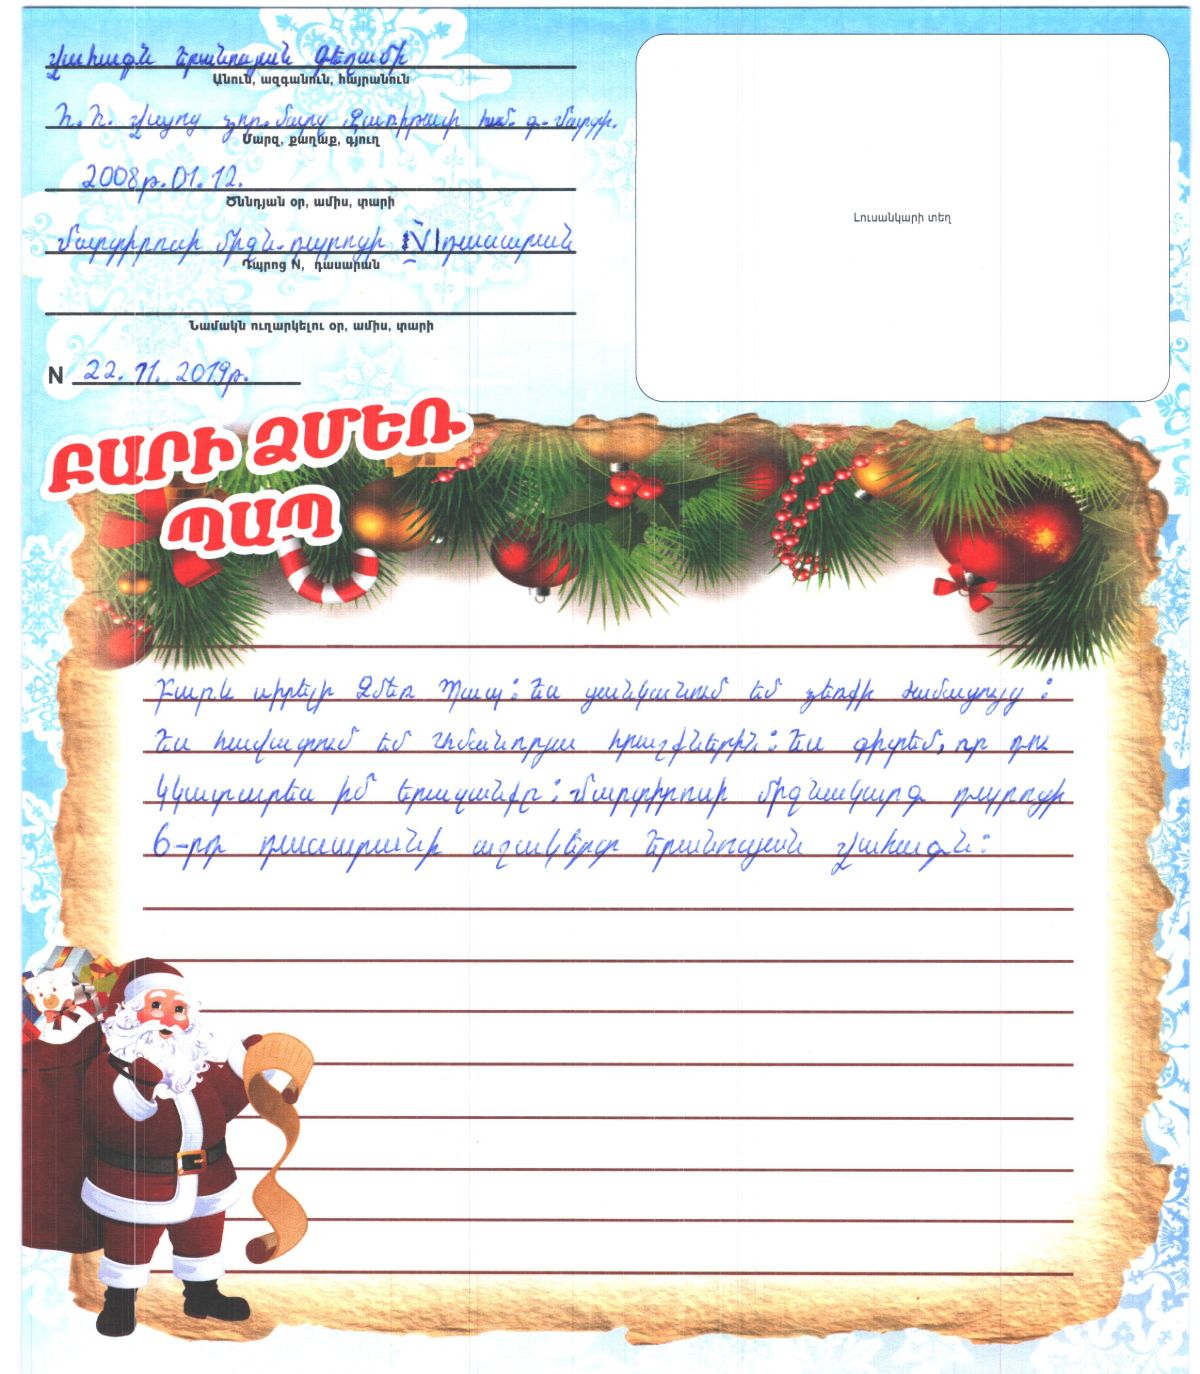 Վահագն Երանոսյան Գեղամի
Անուն, ազգանուն, հայրանուն
Հ.Հ. Վայոց ձոր. մարզ Զառիթափ համ. գ. Մարտիր.
Մարզ, քաղաք, գյուղ
2008թ.01.12.
Ծննդյան օր, ամիս, տարի
Մարտիրոսի միջն. դպրոցի VI դասարան
Դպրոց N, դասարան
Նամակն ուղարկելու օր, ամիս, տարի
N 22. 11. 2019թ.
Լուսանկարի տեղ
ԲԱՐԻ ՁՄԵՌ
ՊԱՊ
Բարև սիրելի Ձմեռ Պապ: Ես ցանկանում եմ ձեռքի ժամացույց:
Ես հավատում եմ ամանորյա հրաշքներին: Ես գիտեմ, որ դու
կկատարես իմ երազանքը: Մարտիրոսի միջնակարգ դպրոցի
6-րդ դասարանի աշակերտ Երանոսյան Վահագն: